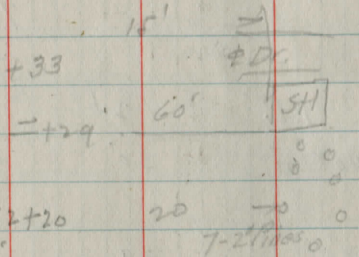 15'
+33 ¢ Dr.
+29 60' SH
2+20 20
7-2" Pines